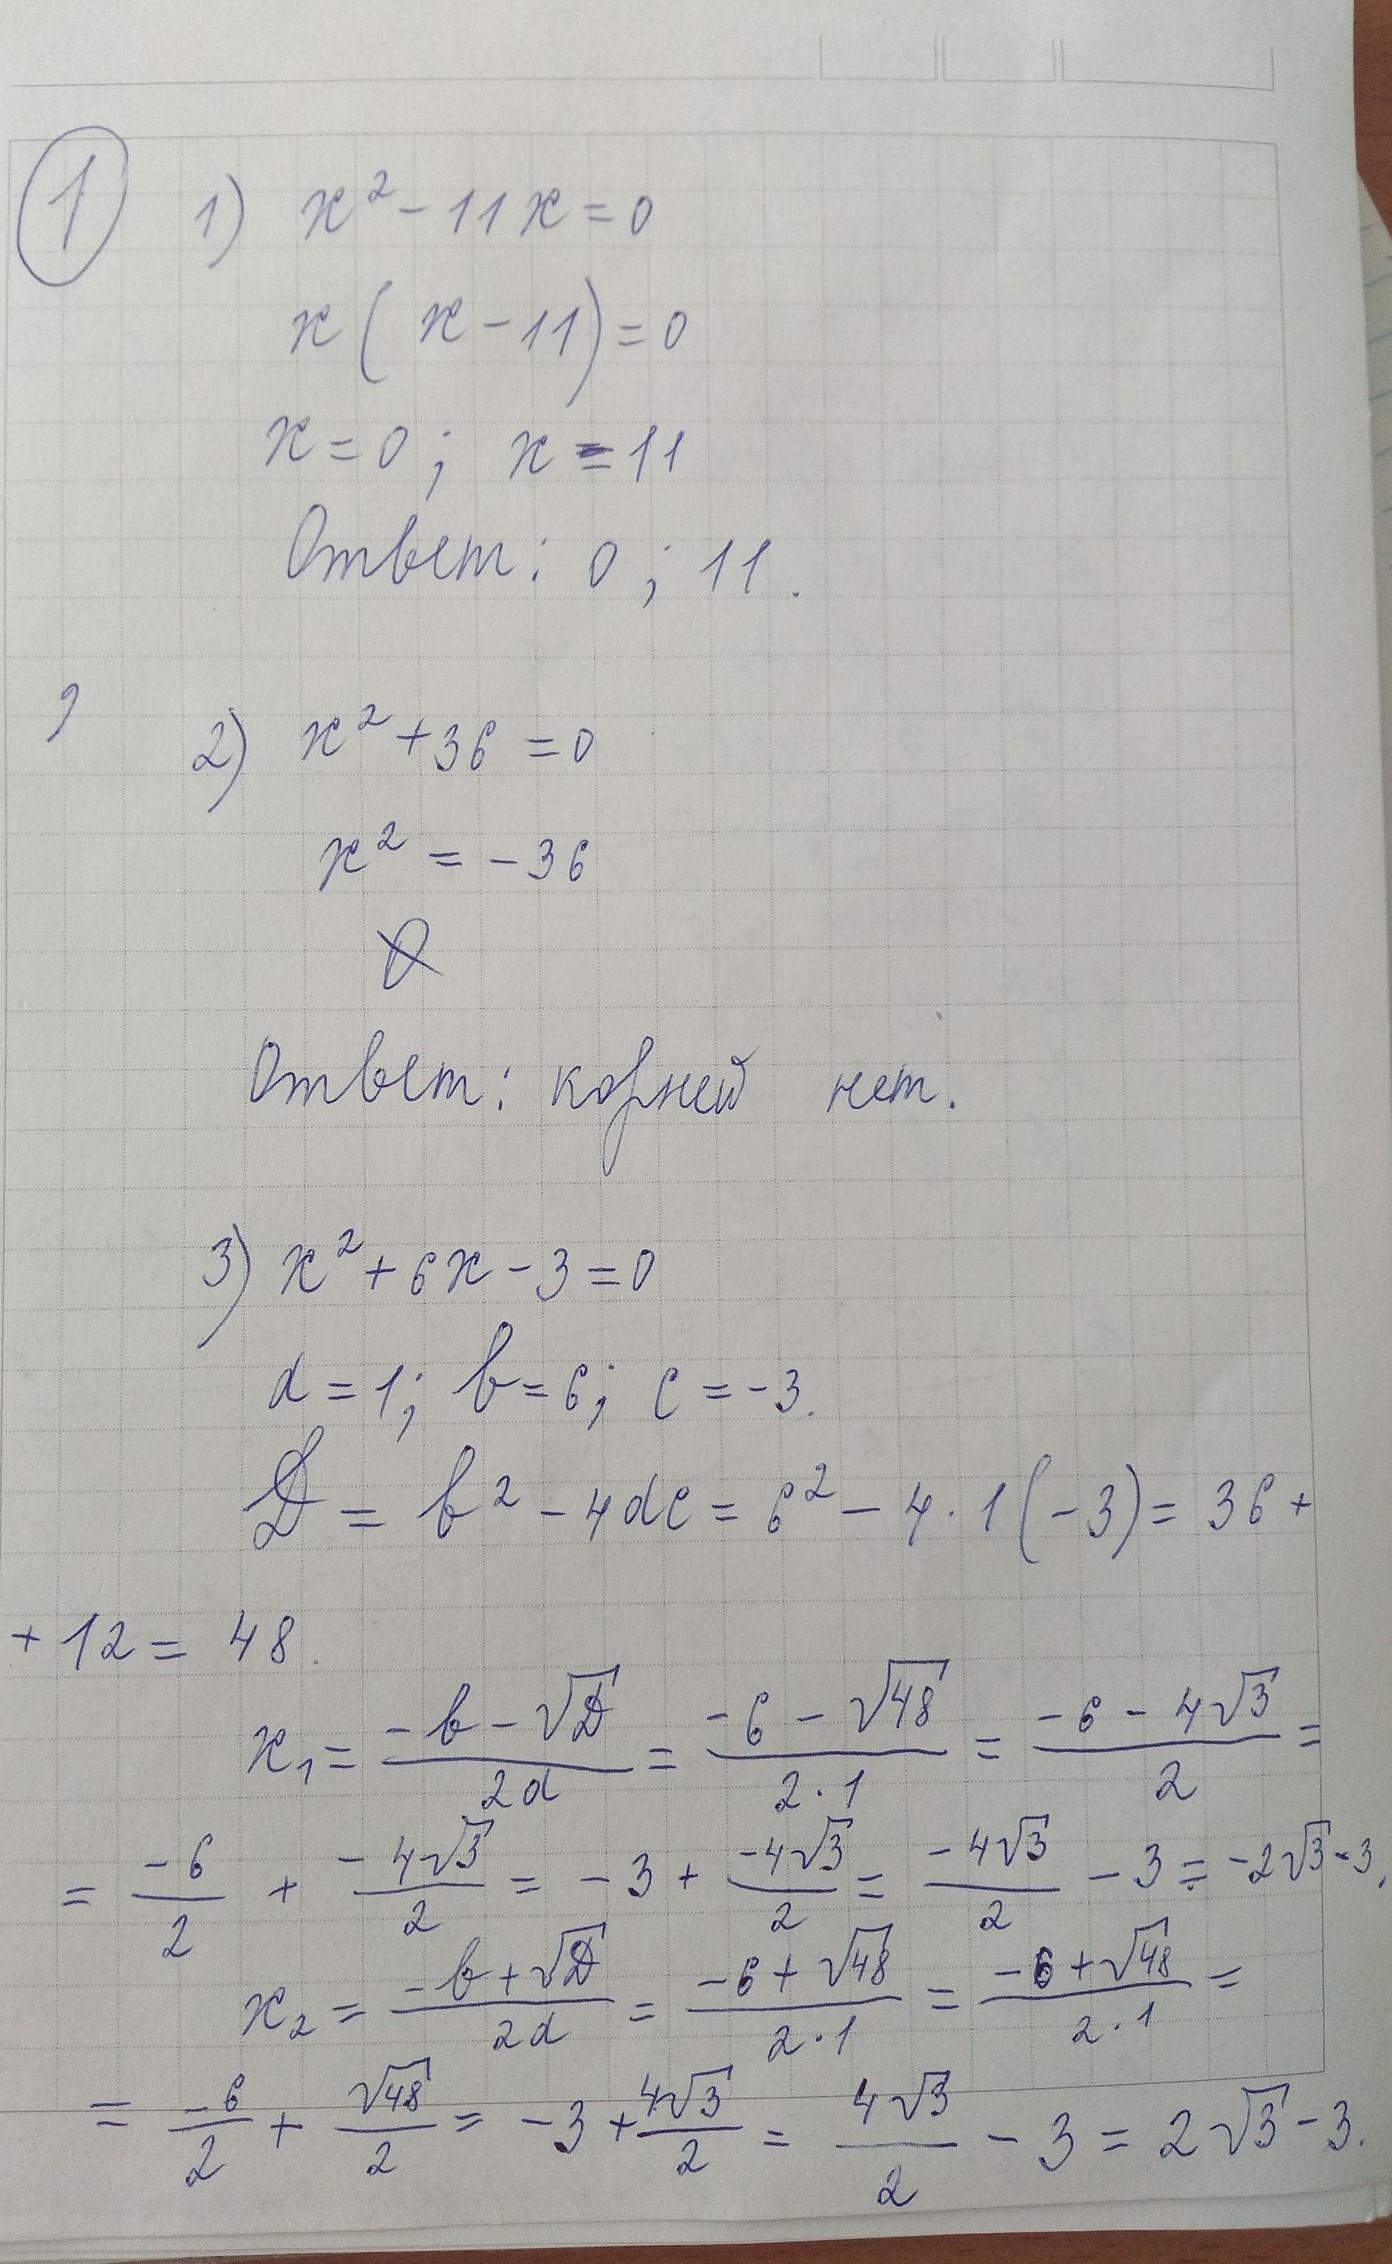 1 1) x² - 11x = 0
x(x - 11) = 0
x = 0; x = 11
Ответ: 0; 11.
2) x² + 36 = 0
x² = -36
Ø
Ответ: корней нет.
3) x² + 6x - 3 = 0
a = 1; b = 6; c = -3.
D = b² - 4ac = 6² - 4 · 1(-3) = 36 +
+ 12 = 48.
x₁ = (-b - √D)/(2a) = (-6 - √48)/(2 · 1) = (-6 - 4√3)/2 =
= -6/2 + (-4√3)/2 = -3 + (-4√3)/2 = (-4√3)/2 - 3 = -2√3 - 3.
x₂ = (-b + √D)/(2a) = (-6 + √48)/(2 · 1) = (-6 + √48)/(2 · 1) =
= -6/2 + √48/2 = -3 + 4√3/2 = 4√3/2 - 3 = 2√3 - 3.